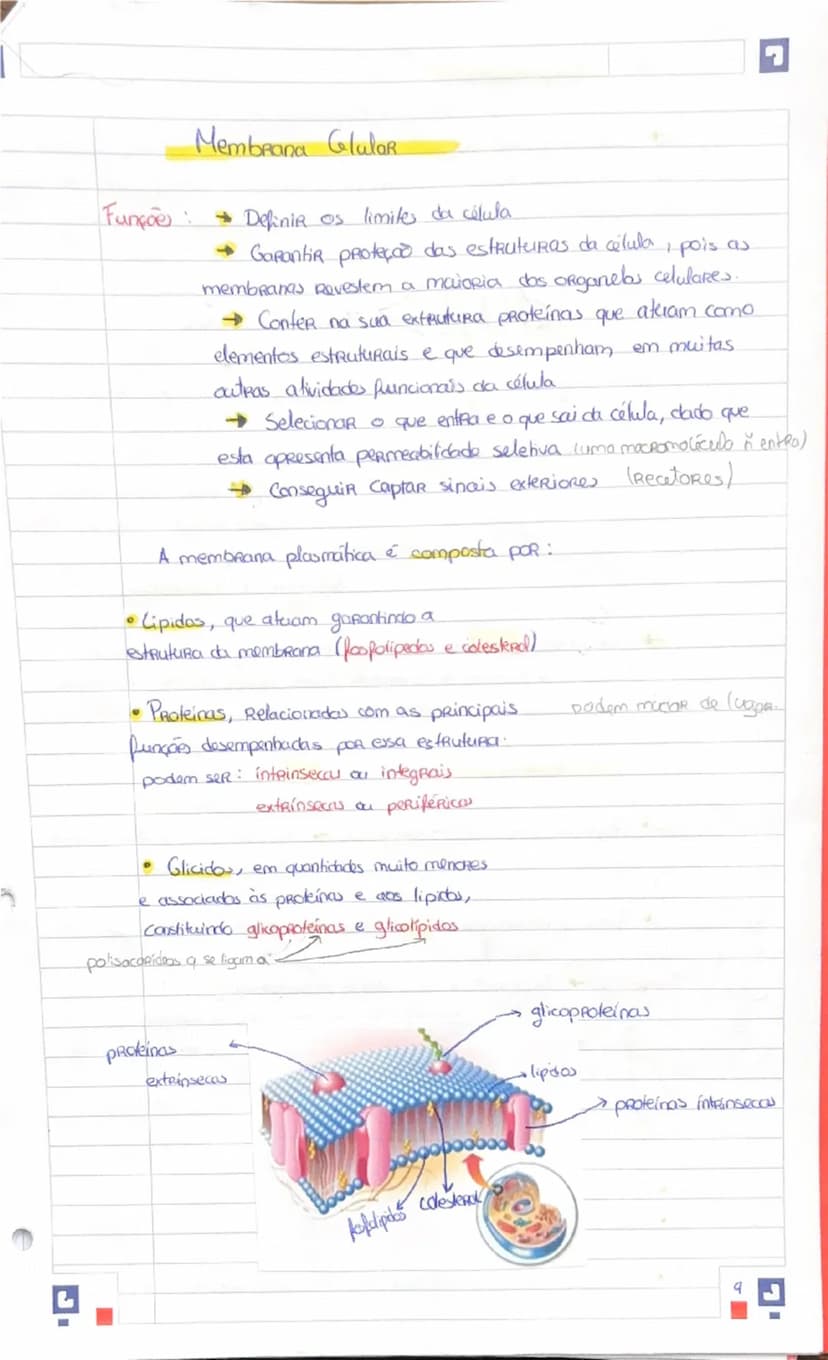 Membrana Celular
Funções : → Definir os limites da célula
→ Garantir proteção das estruturas da célula, pois as
membranas revestem a maioria dos organelos celulares.
→ Conter na sua extrutura proteínas que atuam como
elementos estruturais e que desempenham, em muitas
outras atividades funcionais da célula
→ Selecionar o que entra e o que sai da célula, dado que
esta apresenta permeabilidade seletiva (uma macromolécula ñ entra)
→ Conseguir captar sinais exteriores (Recetores)
A membrana plasmática é composta por :
• Lipidos, que atuam garantindo a
estrutura da membrana (fosfolípedos e colesterol)
• Proteínas, Relacionadas com as principais podem mudar de lugar.
funções desempenhadas por essa estrutura.
podem ser : intrínsecas ou integrais
extrínsecas ou periféricas
• Glicidos, em quantidades muito menores
e associados às proteínas e aos lipidos,
constituindo glicoproteínas e glicolípidos
polisacarideos q se ligam a
glicoproteínas
proteínas
extrinsecas
lipidos
proteínas intrínsecas
colesterol
fosfolipidos
9